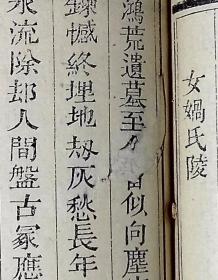 女媧氏陵
鴻荒遺墓至今 似向塵
憾終埋地刼灰愁長年
流除却人間盤古冢應